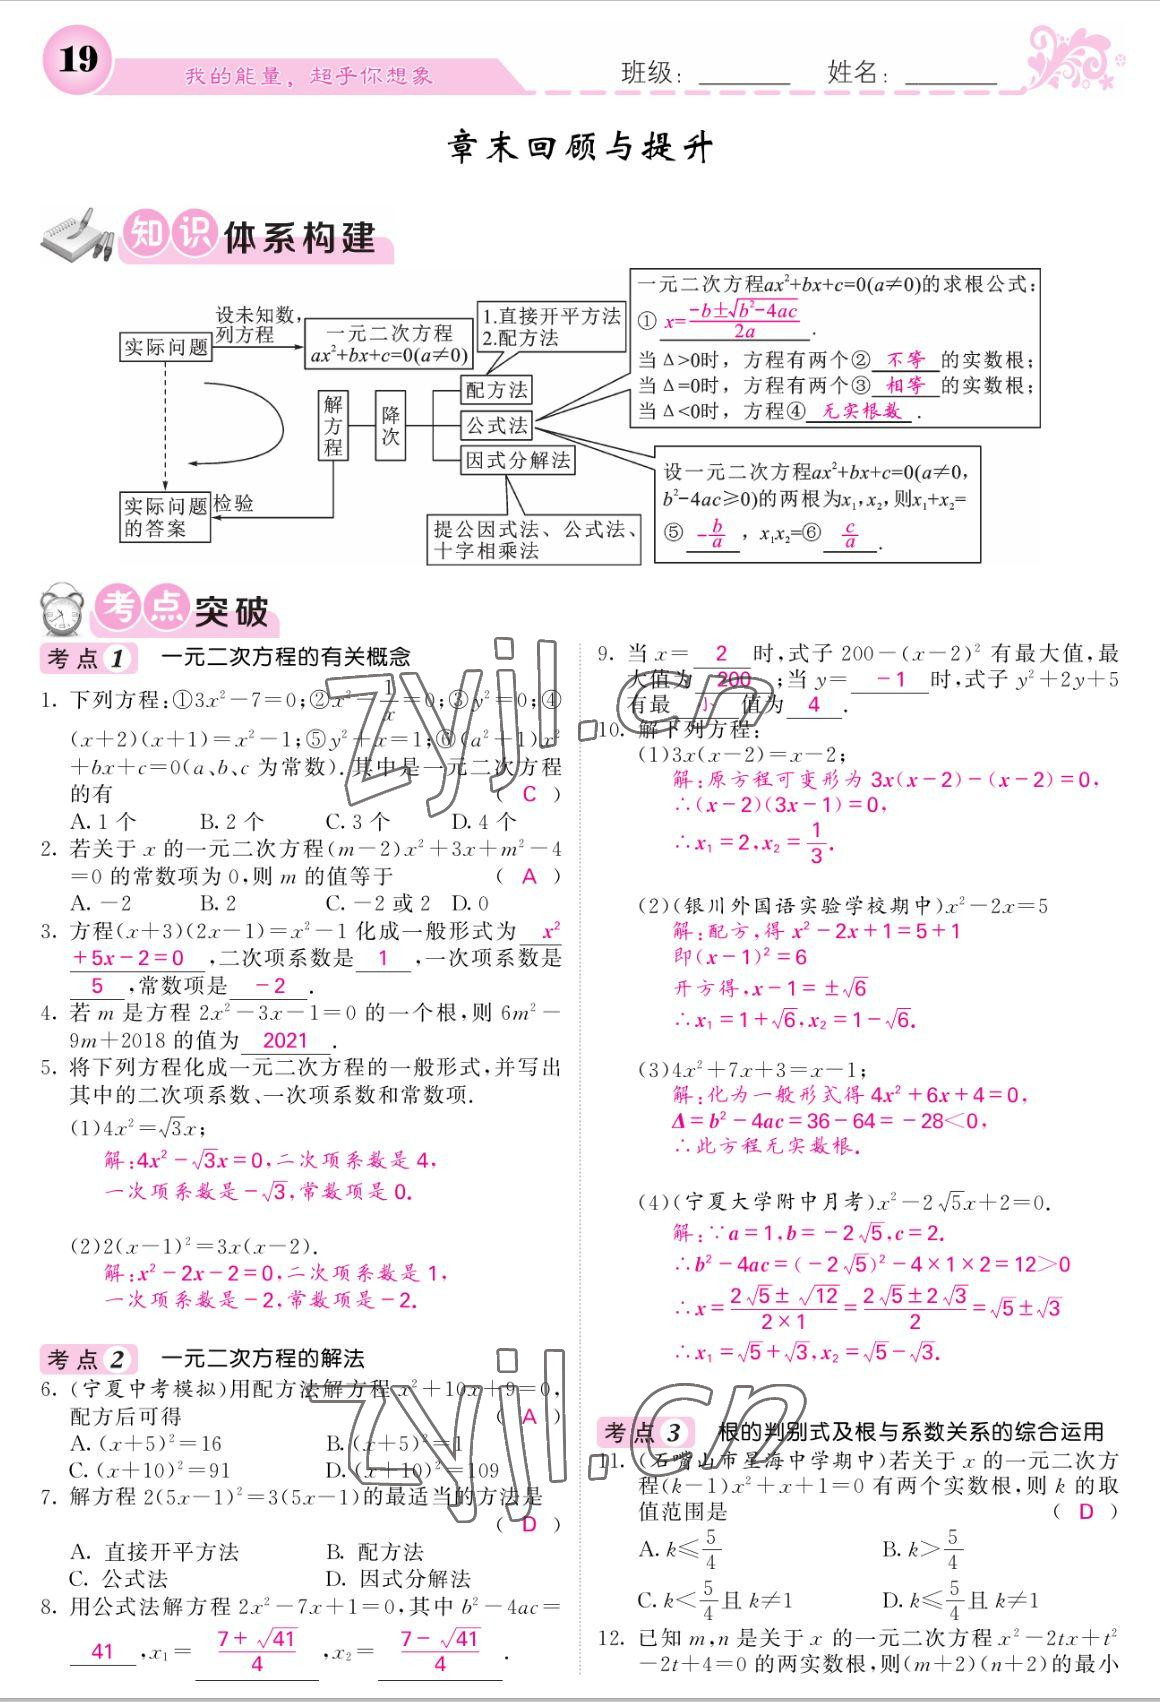 19
我的能量，超乎你想象
班级：
姓名：
章末回顾与提升
知识体系构建
实际问题
设未知数，
列方程
一元二次方程
ax²+bx+c=0(a≠0)
1.直接开平方法
2.配方法
解方程
降次
配方法
公式法
因式分解法
提公因式法、公式法、
十字相乘法
检验
实际问题
的答案
一元二次方程ax²+bx+c=0(a≠0)的求根公式：
① x=(-b±√(b²-4ac))/(2a) .
当Δ>0时，方程有两个② 不等 的实数根；
当Δ=0时，方程有两个③ 相等 的实数根；
当Δ<0时，方程④ 无实根数 .
设一元二次方程ax²+bx+c=0(a≠0，
b²-4ac≥0)的两根为x₁,x₂,则x₁+x₂=
⑤ -b/a ，x₁x₂=⑥ c/a .
考点突破
考点1 一元二次方程的有关概念
1. 下列方程:①3x²－7＝0;②x²－1/x＝0;③y²＝0;④
(x＋2)(x＋1)＝x²－1;⑤y²＋x＝1;⑥(a²＋1)x²
＋bx＋c＝0(a、b、c 为常数).其中是一元二次方程
的有 ( C )
A. 1 个 B. 2 个 C. 3 个 D. 4 个
2. 若关于 x 的一元二次方程(m－2)x²＋3x＋m²－4
＝0 的常数项为 0,则 m 的值等于 ( A )
A. －2 B. 2 C. －2 或 2 D. 0
3. 方程(x＋3)(2x－1)＝x²－1 化成一般形式为 x²
＋5x－2＝0 ,二次项系数是 1 ,一次项系数是
5 ,常数项是 －2 .
4. 若 m 是方程 2x²－3x－1＝0 的一个根,则 6m²－
9m＋2018 的值为 2021 .
5. 将下列方程化成一元二次方程的一般形式,并写出
其中的二次项系数、一次项系数和常数项.
(1)4x²＝√3x;
解:4x²－√3x＝0,二次项系数是 4,
一次项系数是－√3,常数项是 0.
(2)2(x－1)²＝3x(x－2).
解:x²－2x－2＝0,二次项系数是 1,
一次项系数是－2,常数项是－2.
考点2 一元二次方程的解法
6. (宁夏中考模拟)用配方法解方程 x²＋10x＋9＝0,
配方后可得 ( A )
A. (x＋5)²＝16 B. (x＋5)²＝1
C. (x＋10)²＝91 D. (x＋10)²＝109
7. 解方程 2(5x－1)²＝3(5x－1)的最适当的方法是
( D )
A. 直接开平方法 B. 配方法
C. 公式法 D. 因式分解法
8. 用公式法解方程 2x²－7x＋1＝0,其中 b²－4ac＝
41 ,x₁＝ (7＋√41)/4 ,x₂＝ (7－√41)/4 .
9. 当 x＝ 2 时,式子 200－(x－2)² 有最大值,最
大值为 200 ;当 y＝ －1 时,式子 y²＋2y＋5
有最 小 值为 4 .
10. 解下列方程:
(1)3x(x－2)＝x－2;
解:原方程可变形为 3x(x－2)－(x－2)＝0,
∴(x－2)(3x－1)＝0,
∴x₁＝2,x₂＝1/3.
(2)(银川外国语实验学校期中)x²－2x＝5
解:配方,得 x²－2x＋1＝5＋1
即(x－1)²＝6
开方得,x－1＝±√6
∴x₁＝1＋√6,x₂＝1－√6.
(3)4x²＋7x＋3＝x－1;
解:化为一般形式得 4x²＋6x＋4＝0,
Δ＝b²－4ac＝36－64＝－28＜0,
∴此方程无实数根.
(4)(宁夏大学附中月考)x²－2√5x＋2＝0.
解:∵a＝1,b＝－2√5,c＝2.
∴b²－4ac＝(－2√5)²－4×1×2＝12＞0
∴x＝(2√5±√12)/(2×1)＝(2√5±2√3)/2＝√5±√3
∴x₁＝√5＋√3,x₂＝√5－√3.
考点3 根的判别式及根与系数关系的综合运用
11. (石嘴山市星海中学期中)若关于 x 的一元二次方
程(k－1)x²＋x＋1＝0 有两个实数根,则 k 的取
值范围是 ( D )
A. k≤5/4 B. k＞5/4
C. k＜5/4且 k≠1 D. k≤5/4且 k≠1
12. 已知 m,n 是关于 x 的一元二次方程 x²－2tx＋t²
－2t＋4＝0 的两实数根,则(m＋2)(n＋2)的最小
zyjl.cn
zyjl.cn